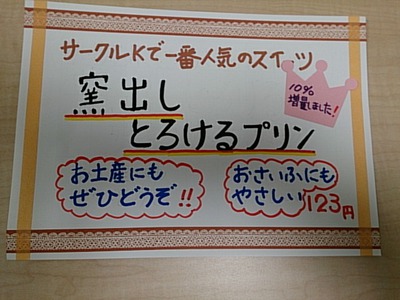 サークルKで一番人気のスイーツ
10%
増量しました!
窯出し
とろけるプリン
お土産にも
ぜひどうぞ!!
おさいふにも
やさしい123円